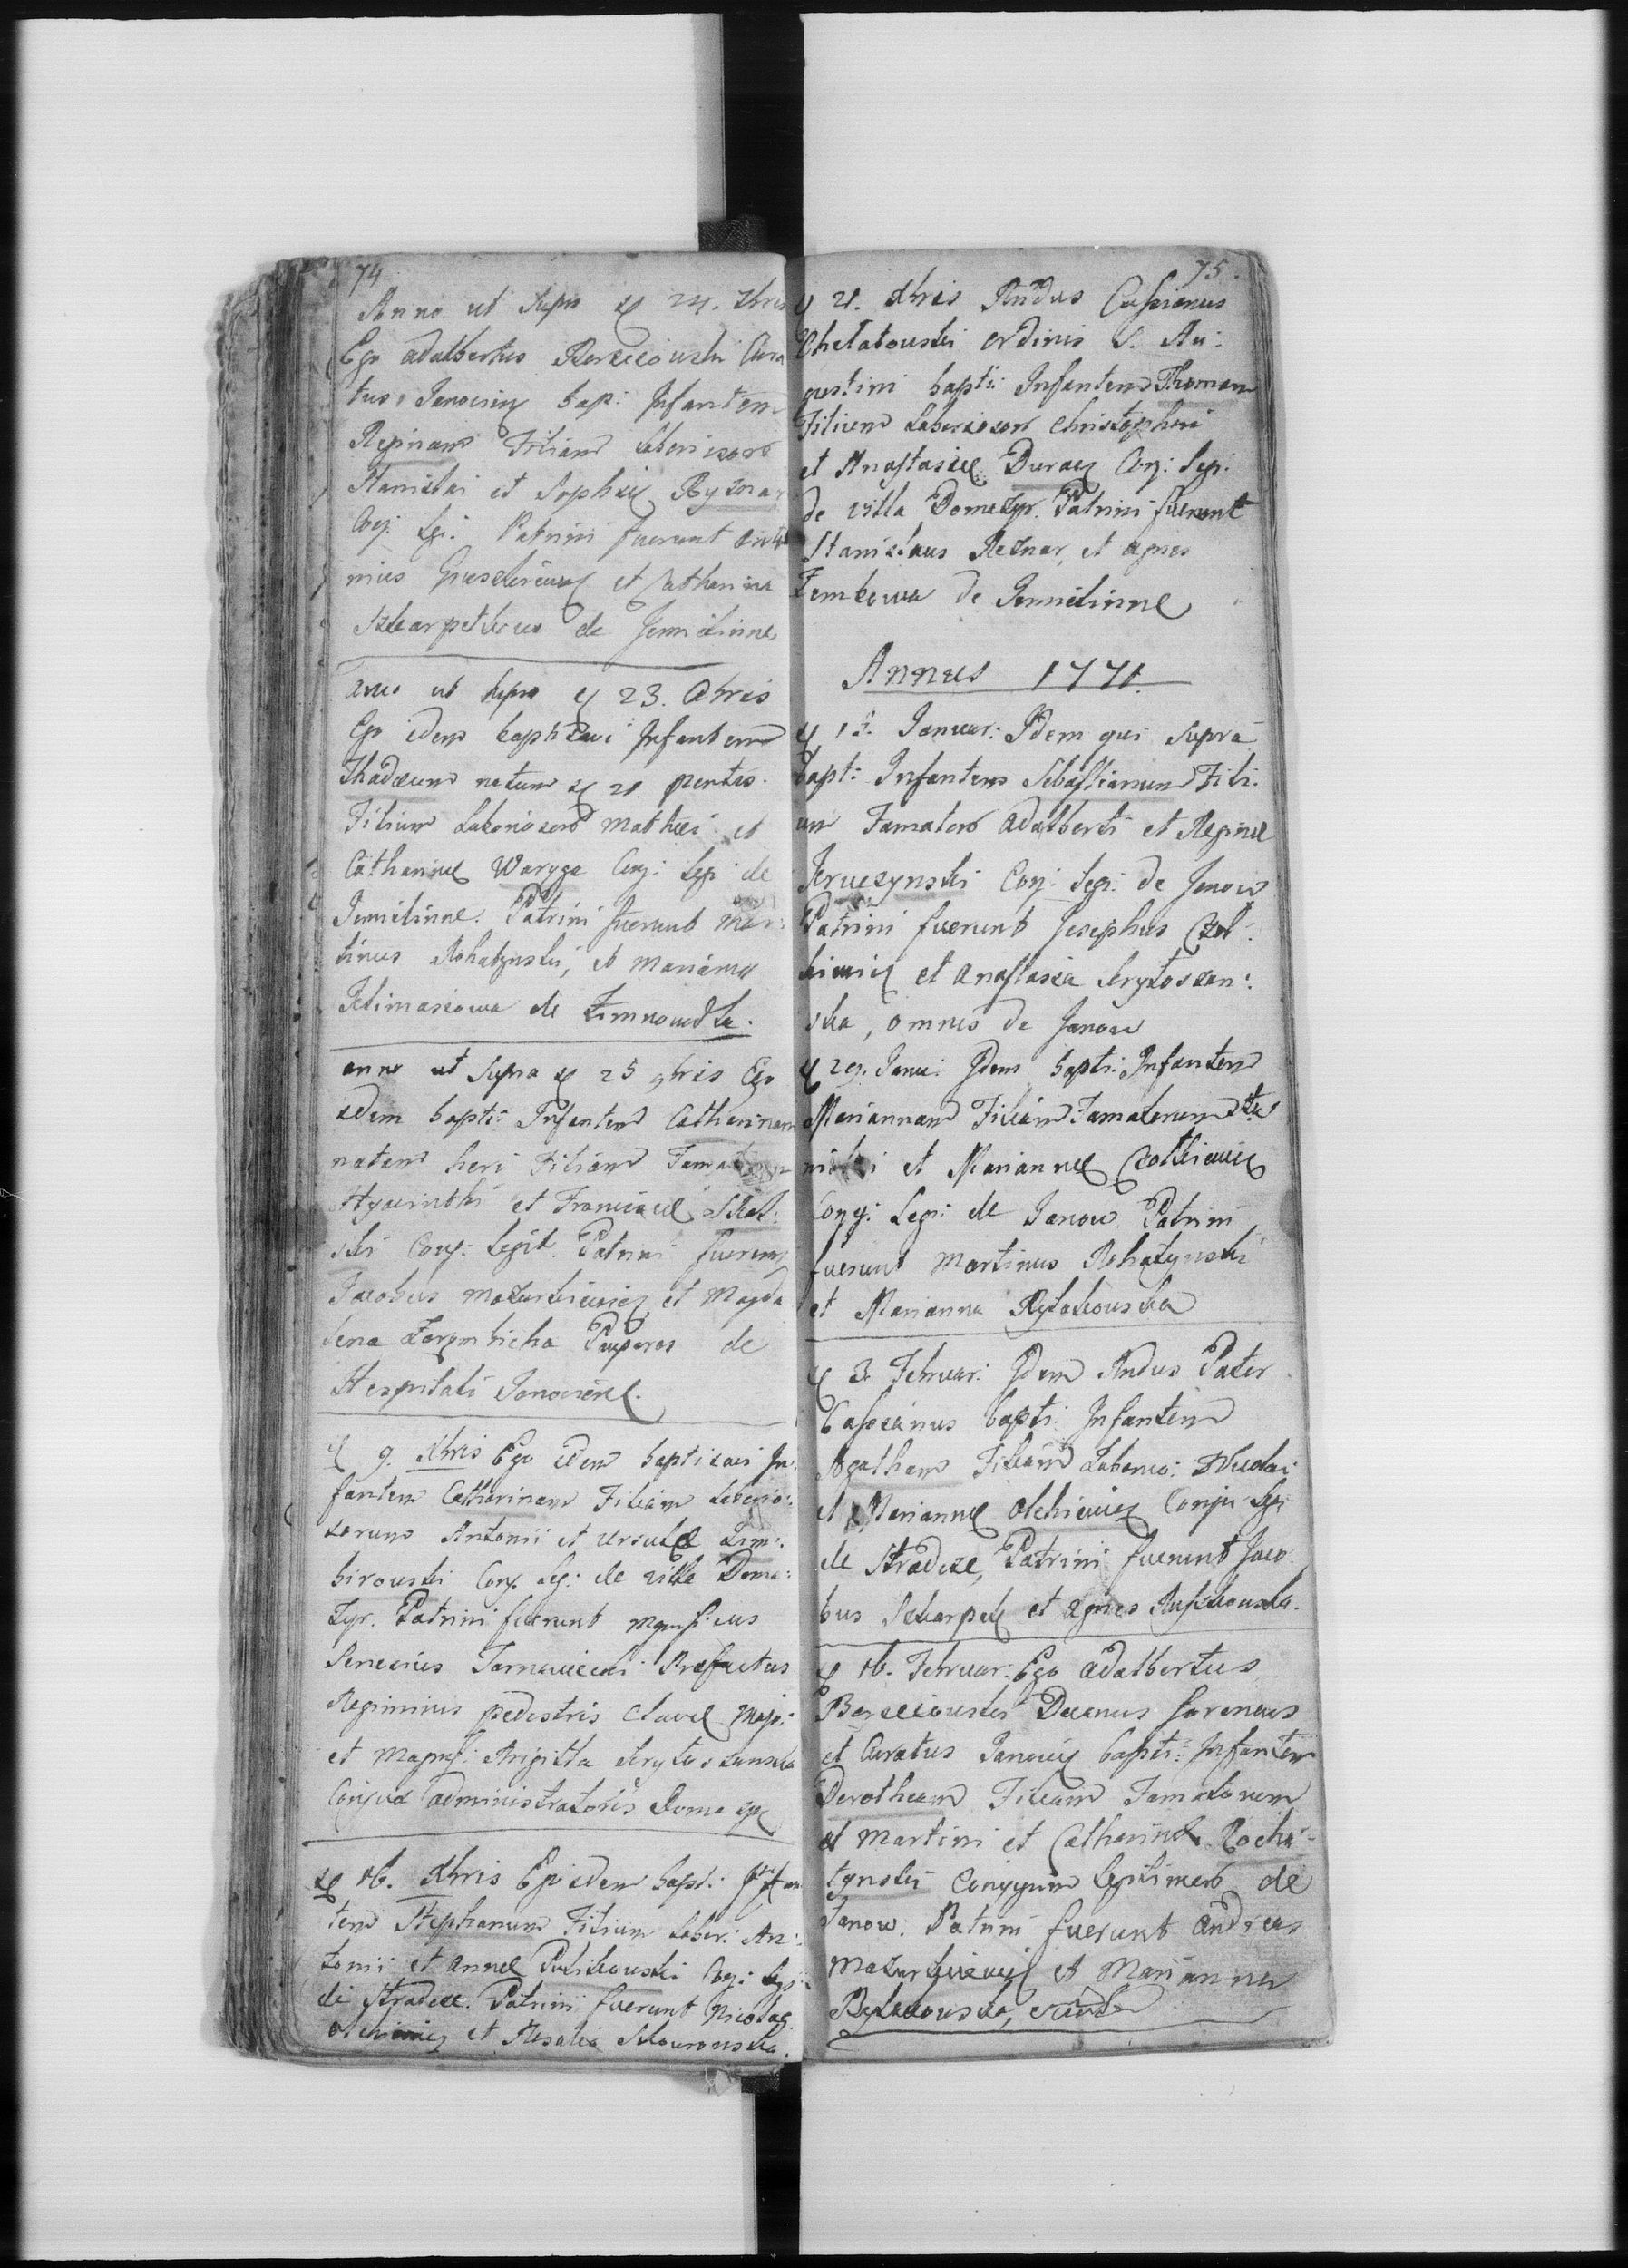 74
Anno ut supra d 24. 7bris
Ego Adalbertus Cura
tus Janoviey bap: Infantem
Reginam Filiam laboriosorb
Stanislai et Sophiæ Ryznar
Conj: Leg: Patrini fuerunt Anto
nius et Catharina
de Jemielinne
Anno ut supra d 23. 8bris
Ego idem baptizavi Infantem
Thadæum natum d 21. pentes.
Filium Laboriosorb Mathæi et
Catharinæ Waryga Conj: Legi: de
Jemielinne. Patrini fuerunt Mar:
tinus Rohatynski, et Marianna
Klimasiowa de Zimnowodka.
Anno ut supra d 25 9bris Ego
idem bapti: Infantem Catharinam
natam heri Filiam
Hyacinthi et Franciscæ Skal:
ski Conj: Legit. Patrini fuerunt
Jacobus Mazurkiewicz et Magda
lena Zarembicha Pauperes de
Hospitali Janoviens.
d 9. Xbris Ego idem baptizavi In:
fantem Catharinam Filiam Laborio:
sorum Antonii et Ursulæ Zem:
birowski Conj: Leg: de villa Doma:
zyr. Patrini fuerunt Magnificus
Præfectus
Regiminis pedestris Clavæ Maj:
et Magnifi: Brigitta
Conjux Administratoris Doma zyr
d 16. Xbris Ego idem bapt: Infan
tem Stephanum Filium Labor: An:
tonii et Annæ Putikowski Conj: Legi:
de Stradcze. Patrini fuerunt Nicolaus
Olchiewicz et Rosalia Skowronska.
75.
d 21. Xbris Rndus Cassianus
ordinis S. Au:
gustini bapti: Infantem Thomam
Filium Laboriosorb Christophori
et Anastasiæ Duray Conj: Legi:
de villa Domazyr. Patrini fuerunt
Stanislaus Reznar, et Agnes
Zembowa de Jemielinne
Annus 1771.
d 13. Januar: Idem qui supra
bapt: Infantem Sebastianum Fili:
um Famatorb Adalberti et Reginæ
Kruczynski Conj: Legi: de Janow
Patrini fuerunt Josephus Czol:
kiewicz et Anastasia
ska, omnes de Janow
d 29. Janu: Idem bapti: Infantem
Mariannam Filiam Famatorum Sta
nislai et Mariannæ Czolkiewicz
Conj: Legi: de Janow. Patrini
fuerunt Martinus Rohatynski
et Marianna Rytakowska
d 3. Februar: Idem Rndus Pater
Cassianus bapti: Infantem
Agatham Filiam Laborio: Nicolai
et Mariannæ Olchiewicz Conju: Legi
de Stradcze, Patrini fuerunt Jaco
bus Szkarpek et Agnes
d 16. Februar: Ego Adalbertus
Decanus foraneus
et Curatus Janoviey bapti: Infantem
Dorotheam Filiam Famatorum
Martini et Catharinæ Roha:
tynski Conjugum Legitimorb de
Janow. Patrini fuerunt Andreas
Mazurkiewicz et Marianna
Rytakowska,